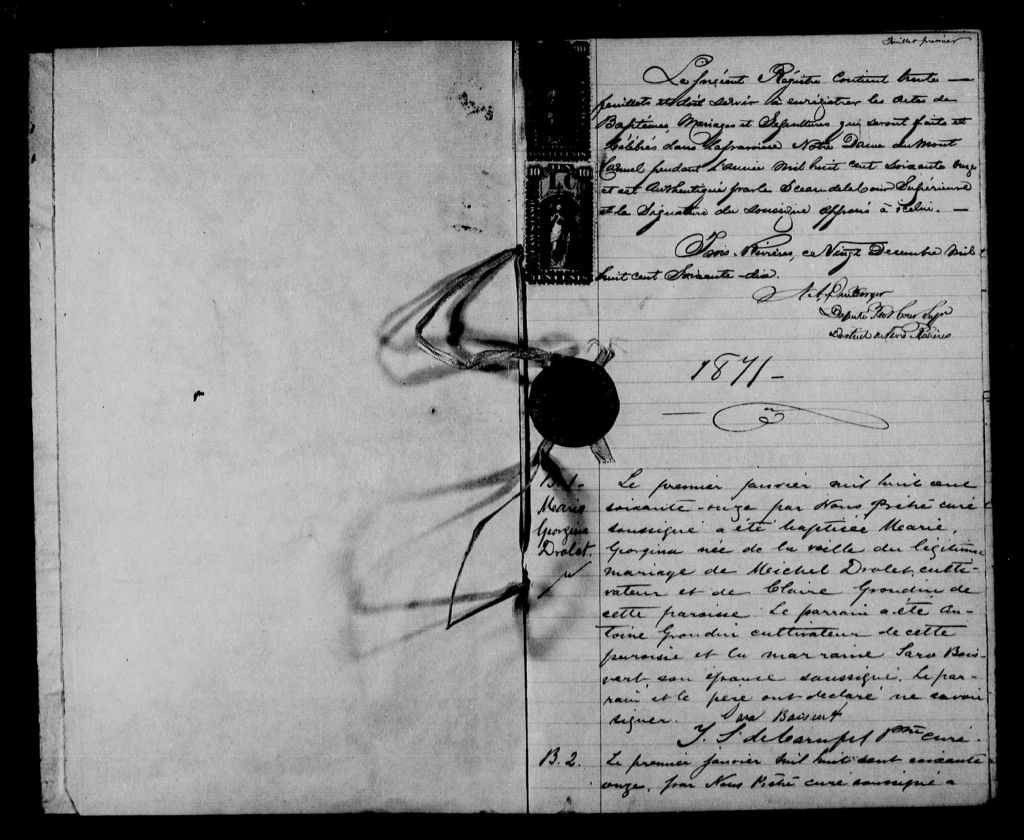 Feuillet premier
Le présent Régistre contient trente
feuillets et doit servir à enrégistrer les actes de
Baptêmes, Mariages et Sépultures qui seront faits et
Célébrés dans la paroisse Notre Dame du Mont
Carmel pendant l'année mil huit cent soixante onze
et est Authentiqué par le Sceau de la Cour Supérieure
et la Signature du Soussigné apposés à icelui.
Trois-Rivières, ce Vingt Decembre mil
huit cent Soixante-dix.
Député Prot Cour Supr
District de Trois Rivières
1871-
10 TEN 10
B. 1-
Marie
Georgina
Drolet.
Le premier janvier mil huit cent
soixante-onze par Nous Prêtre curé
soussigné a été baptisée Marie,
Georgina née de la veille du légitime
mariage de Meichel Drolet, culti-
vateur et de Claire Grondin de
cette paroisse. Le parrain a été An-
toine Grondin cultivateur de cette
paroisse et la marraine Sara Bois-
vert son épouse soussigné. Le par-
rain et le père ont declaré ne savoir
signer. Sara Boisvert
T. S. de Carufel Ptre curé.
B. 2.
Le premier janvier mil huit cent soixante
onze, par Nous Prêtre curé soussigné a